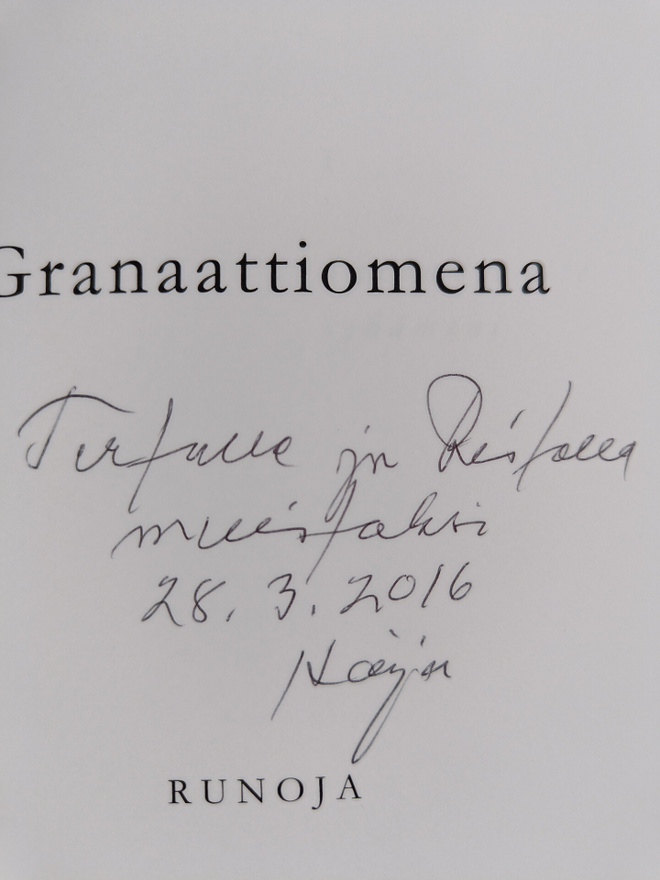 Granaattiomena
Tertulle ja Ristolle
muistoksi
28.3.2016
Kaija
RUNOJA